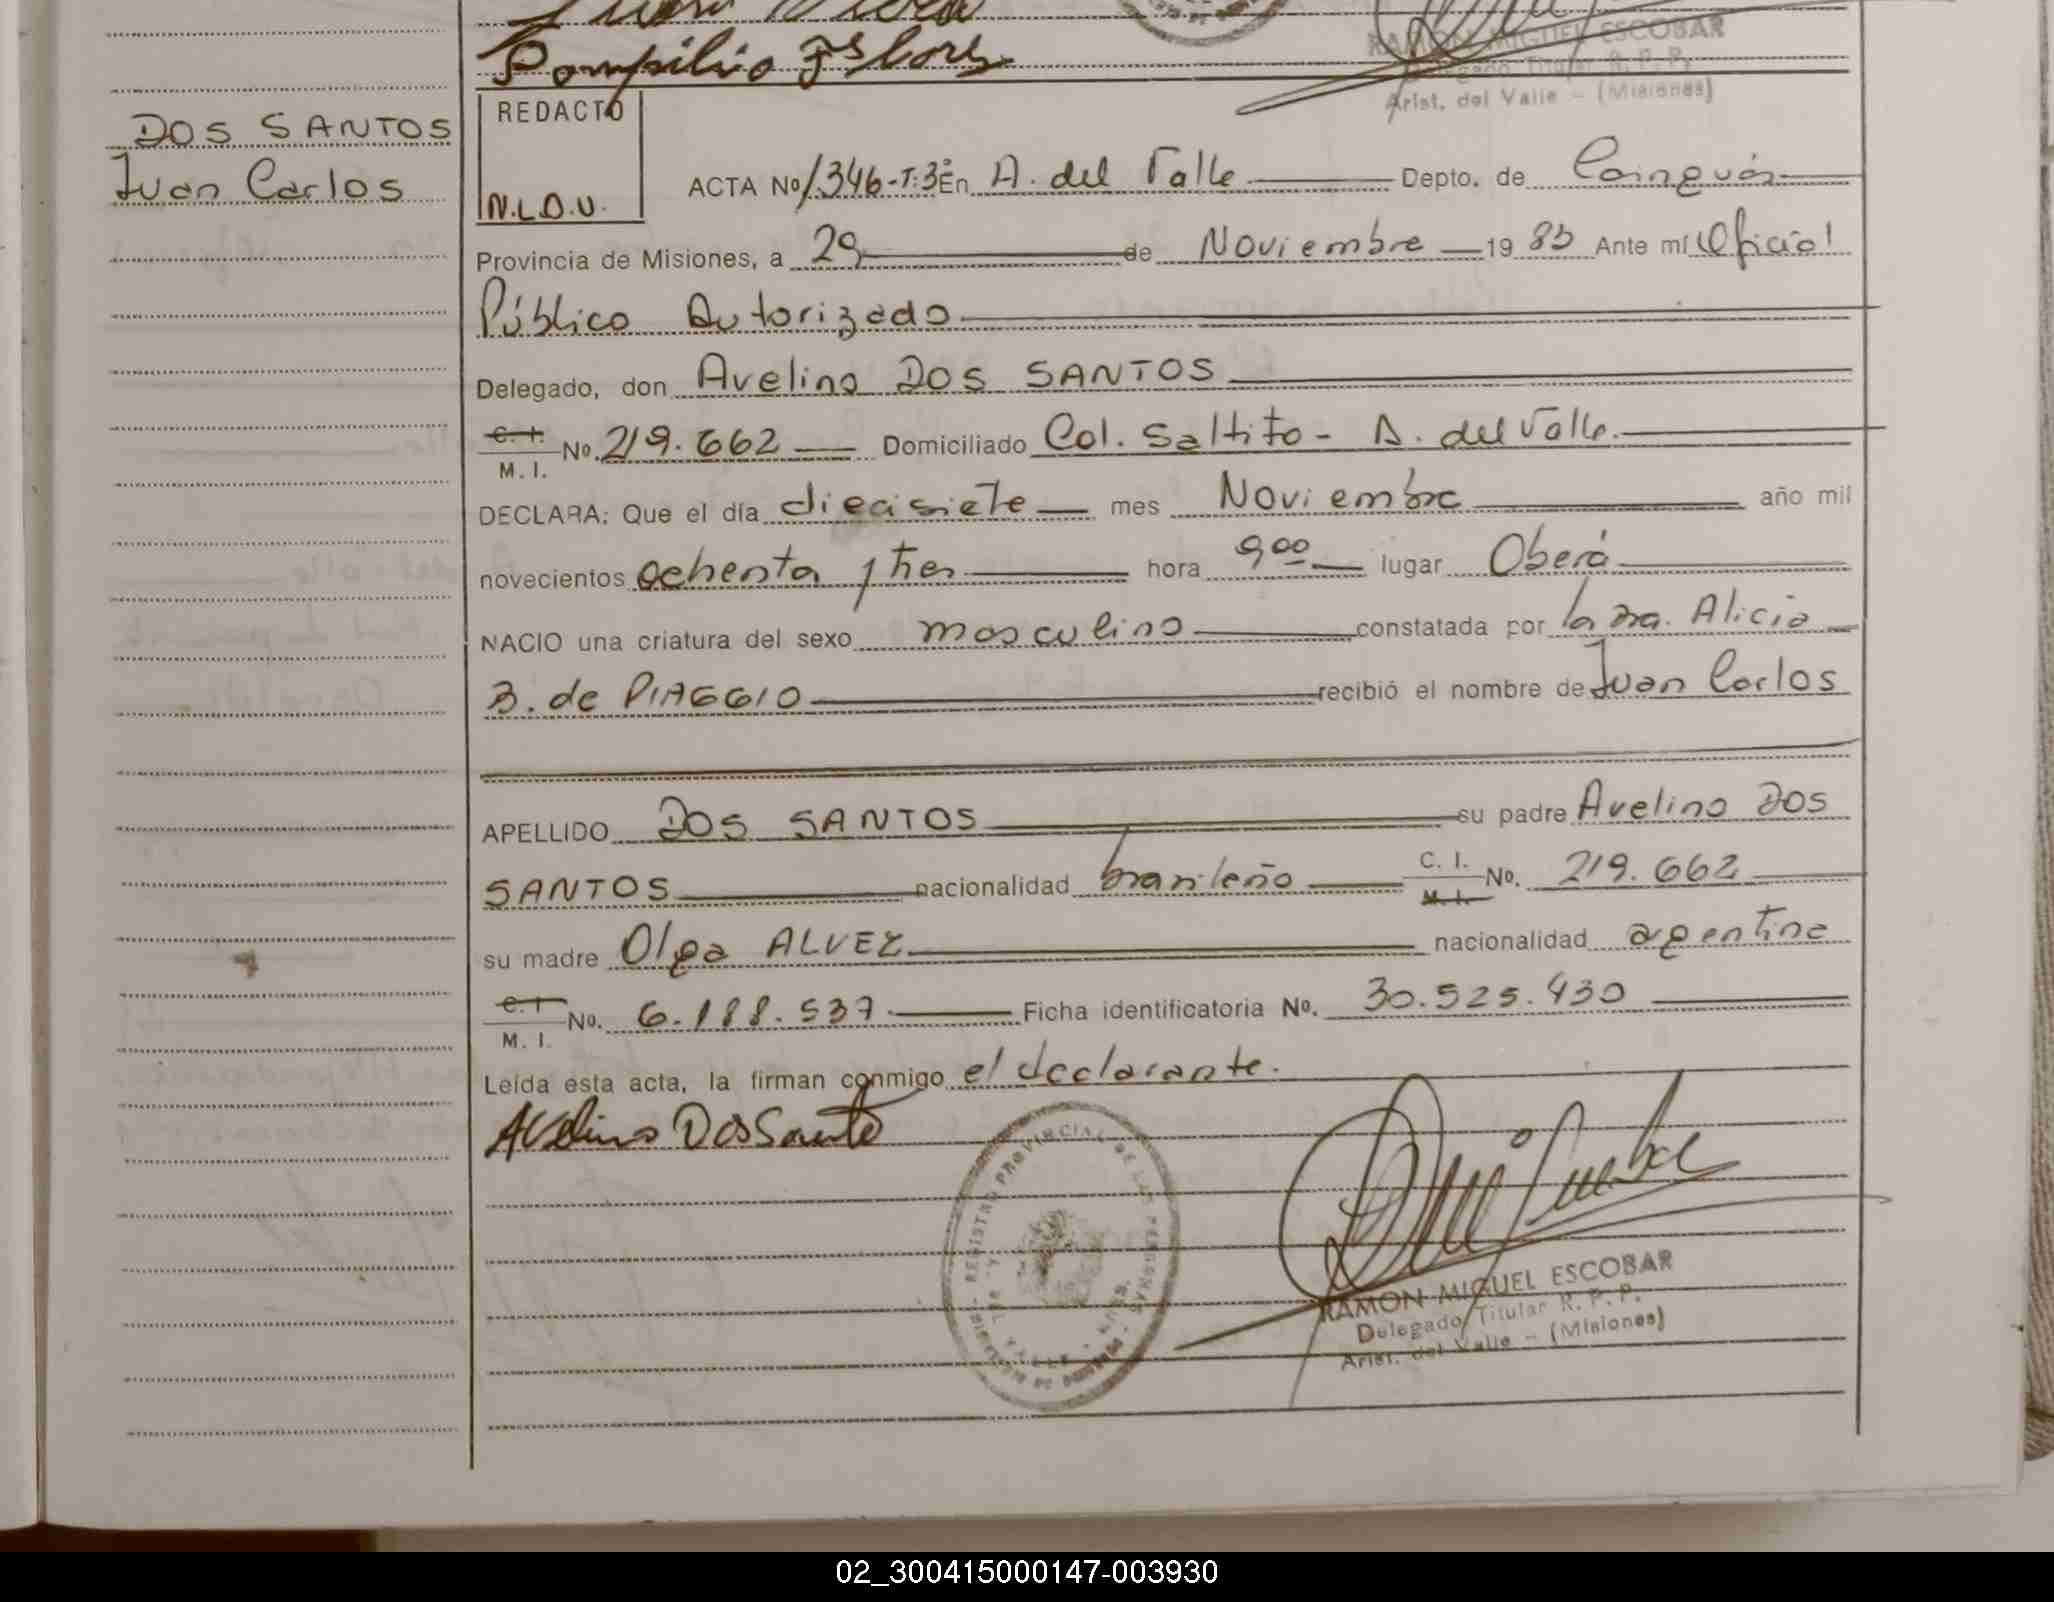 Pompilio Flores
RAMON MIGUEL ESCOBAR
Delegado Titular R. P. P.
Arist. del Valle - (Misiones)
DOS SANTOS
Juan Carlos
REDACTO
N.L.D.U.
ACTA Nº 1.346-T:3º En A. del Valle Depto. de Cainguás
Provincia de Misiones, a 29 de Noviembre 19 83 Ante mí Oficial
Público Autorizado
Delegado, don Avelino DOS SANTOS
C. I. M. I. No. 219.662 Domiciliado Col. Saltito - A. del Valle.
DECLARA: Que el día diecisiete mes Noviembre año mil
novecientos ochenta y tres hora 9,00 lugar Oberá
NACIO una criatura del sexo masculino constatada por la Dra. Alicia
B. de PIAGGIO recibió el nombre de Juan Carlos
APELLIDO DOS SANTOS su padre Avelino DOS
SANTOS nacionalidad brasileño C. I. M. I. No. 219.662
su madre Olga ALVEZ nacionalidad argentina
C. I. M. I. No. 6.188.537 Ficha identificatoria No. 30.525.430
Leída esta acta, la firman conmigo el declarante.
Avelino Dos Santo
REGISTRO PROVINCIAL DE LAS PERSONAS
RAMON MIGUEL ESCOBAR
Delegado Titular R. P. P.
Arist. del Valle - (Misiones)
02_300415000147-003930